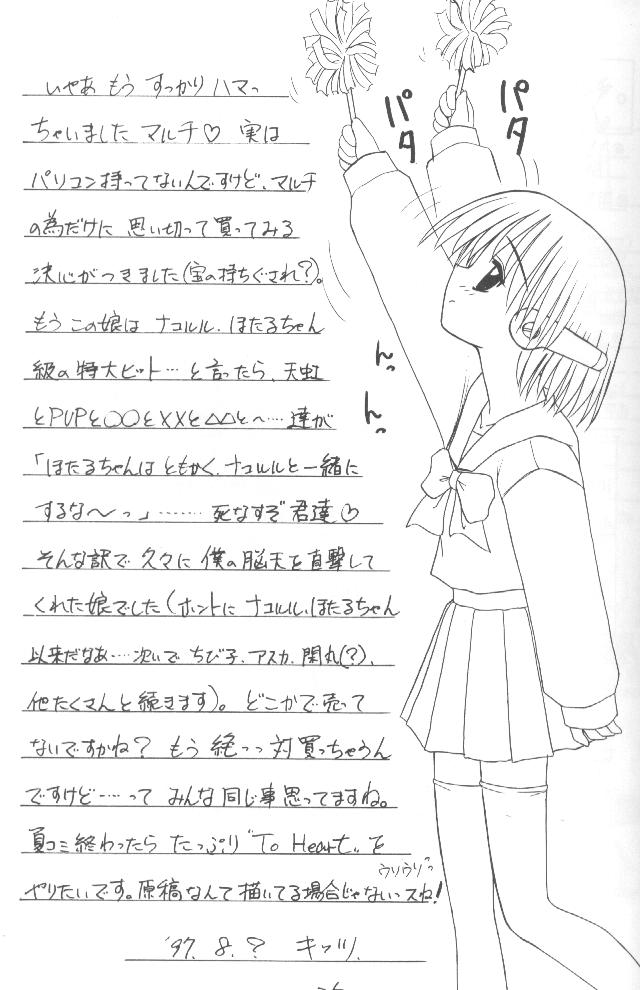 いやあ もう すっかり ハマっ
ちゃいました マルチ♡ 実は
パソコン持ってないんですけど、マルチ
の為だけに 思い切って買ってみる
決心がつきました(宝の持ちぐされ?)。
もう この娘は ナコルル、ほたるちゃん
級の特大ヒット…と言ったら、天虹
とPUPと〇〇と××と△△と〜……達が
「ほたるちゃんは ともかく、ナコルルと一緒に
するな〜っ」………死なすぞ君達♡
そんな訳で 久々に 僕の脳天を直撃して
くれた娘でした(ホントに ナコルル、ほたるちゃん
以来だなあ……次いで ちび子、アスカ、関丸(?)、
他たくさんと続きます)。どこかで売って
ないですかね? もう絶っっ対買っちゃうん
ですけど……って みんな同じ事思ってますね。
夏コミ終わったら たっぷり "To Heart" を
やりたいです。原稿なんて描いてる場合じゃないっスね!
ウリウリっ
'97. 8. ?
パタ
パタ
んっ
んっ